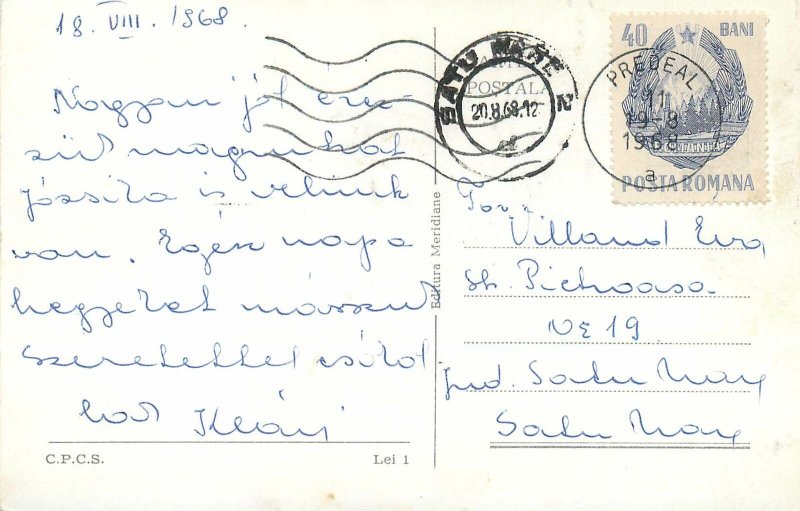 18. VIII. 1968.
Nagyon jól érez-
zük magunkat
Józsika is velünk
van. Egész nap a
hegyeket másszuk
Szeretettel csókol
Klári
C.P.C.S.
Lei 1
Editura Meridiane
POSTALA
SATU MARE 2
20.8.68.12
40 BANI
POSTA ROMANA
PREDEAL
11
19-8
1968
a
Tov.
Villand Eva
str. Pietroasa
No 19
jud. Satu Mare
Satu Mare